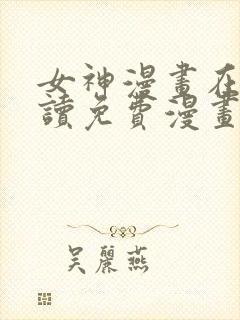 女神漫畫在
讀免費漫畫
吴麗燕